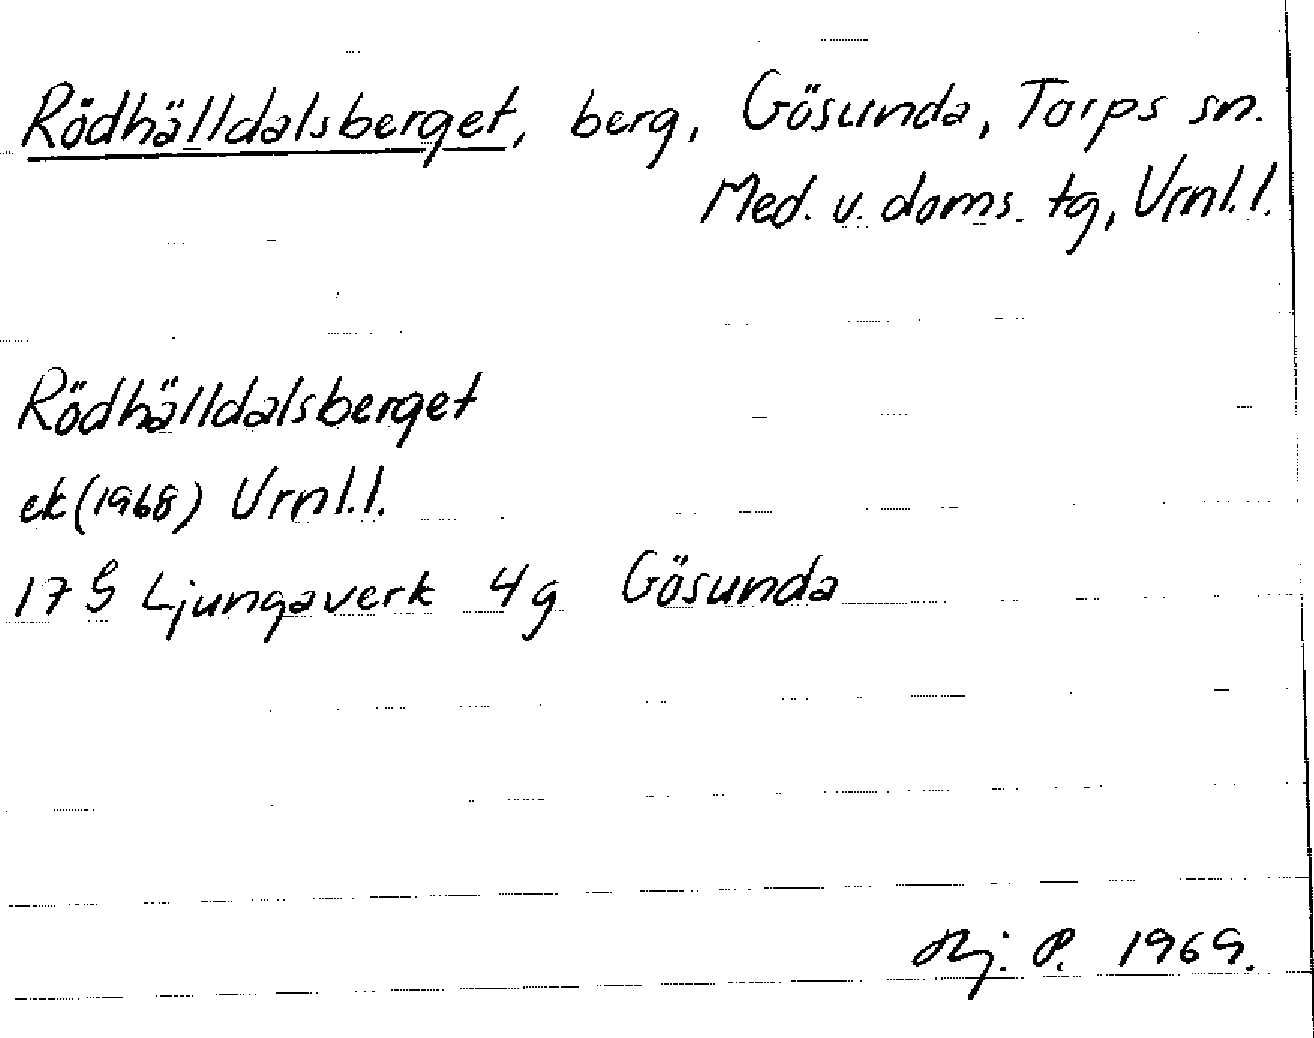 Rödhälldalsberget, berg, Gösunda, Torps sn.
Med. v. doms. tg, Vrnl. l.
Rödhälldalsberget
ek (1968) Vrnl. l.
17 G Ljungaverk 4 g Gösunda
Hj. P. 1969.